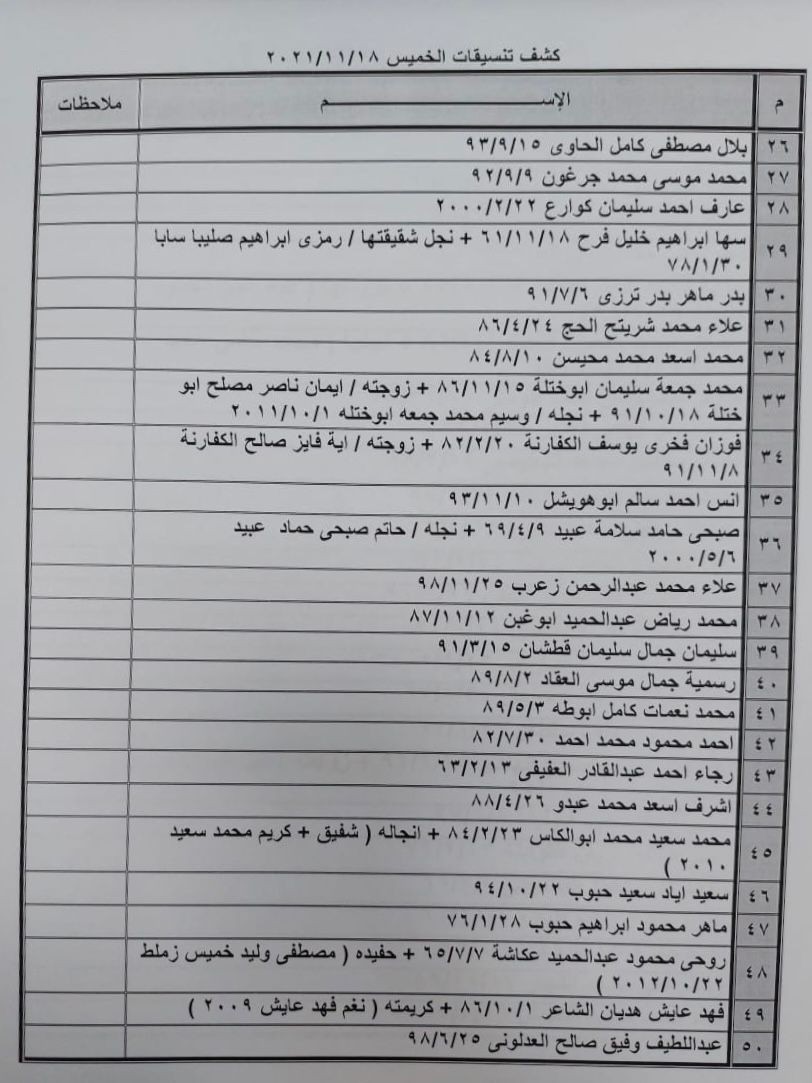 كشف تنسيقات الخميس ٢٠٢١/١١/١٨
م الإســـــــــم ملاحظات
٢٦ بلال مصطفى كامل الحاوى ٩٣/٩/١٥
٢٧ محمد موسى محمد جرغون ٩٢/٩/٩
٢٨ عارف احمد سليمان كوارع ٢٠٠٠/٢/٢٢
٢٩ سها ابراهيم خليل فرح ٦١/١١/١٨ + نجل شقيقتها / رمزى ابراهيم صليبا سابا
٧٨/١/٣٠
٣٠ بدر ماهر بدر ترزى ٩١/٧/٦
٣١ علاء محمد شريتح الحج ٨٦/٤/٢٤
٣٢ محمد اسعد محمد محيسن ٨٤/٨/١٠
٣٣ محمد جمعة سليمان ابوختلة ٨٦/١١/١٥ + زوجته / ايمان ناصر مصلح ابو
ختلة ٩١/١٠/١٨ + نجله / وسيم محمد جمعه ابوختله ٢٠١١/١٠/١
٣٤ فوزان فخرى يوسف الكفارنة ٨٢/٢/٢٠ + زوجته / اية فايز صالح الكفارنة
٩١/١١/٨
٣٥ انس احمد سالم ابوهويشل ٩٣/١١/١٠
٣٦ صبحى حامد سلامة عبيد ٦٩/٤/٩ + نجله / حاتم صبحى حماد عبيد
٢٠٠٠/٥/٦
٣٧ علاء محمد عبدالرحمن زعرب ٩٨/١١/٢٥
٣٨ محمد رياض عبدالحميد ابوغبن ٨٧/١١/١٢
٣٩ سليمان جمال سليمان قطشان ٩١/٣/١٥
٤٠ رسمية جمال موسى العقاد ٨٩/٨/٢
٤١ محمد نعمات كامل ابوطه ٨٩/٥/٣
٤٢ احمد محمود محمد احمد ٨٢/٧/٣٠
٤٣ رجاء احمد عبدالقادر العفيفى ٦٣/٢/١٣
٤٤ اشرف اسعد محمد عبدو ٨٨/٤/٢٦
٤٥ محمد سعيد محمد ابوالكاس ٨٤/٢/٢٣ + انجاله ( شفيق + كريم محمد سعيد
٢٠١٠ )
٤٦ سعيد اياد سعيد حبوب ٩٤/١٠/٢٢
٤٧ ماهر محمود ابراهيم حبوب ٧٦/١/٢٨
٤٨ روحى محمود عبدالحميد عكاشة ٦٥/٧/٧ + حفيده ( مصطفى وليد خميس زملط
٢٠١٢/١٠/٢٢ )
٤٩ فهد عايش هديان الشاعر ٨٦/١٠/١ + كريمته ( نغم فهد عايش ٢٠٠٩ )
٥٠ عبداللطيف وفيق صالح العدلونى ٩٨/٦/٢٥